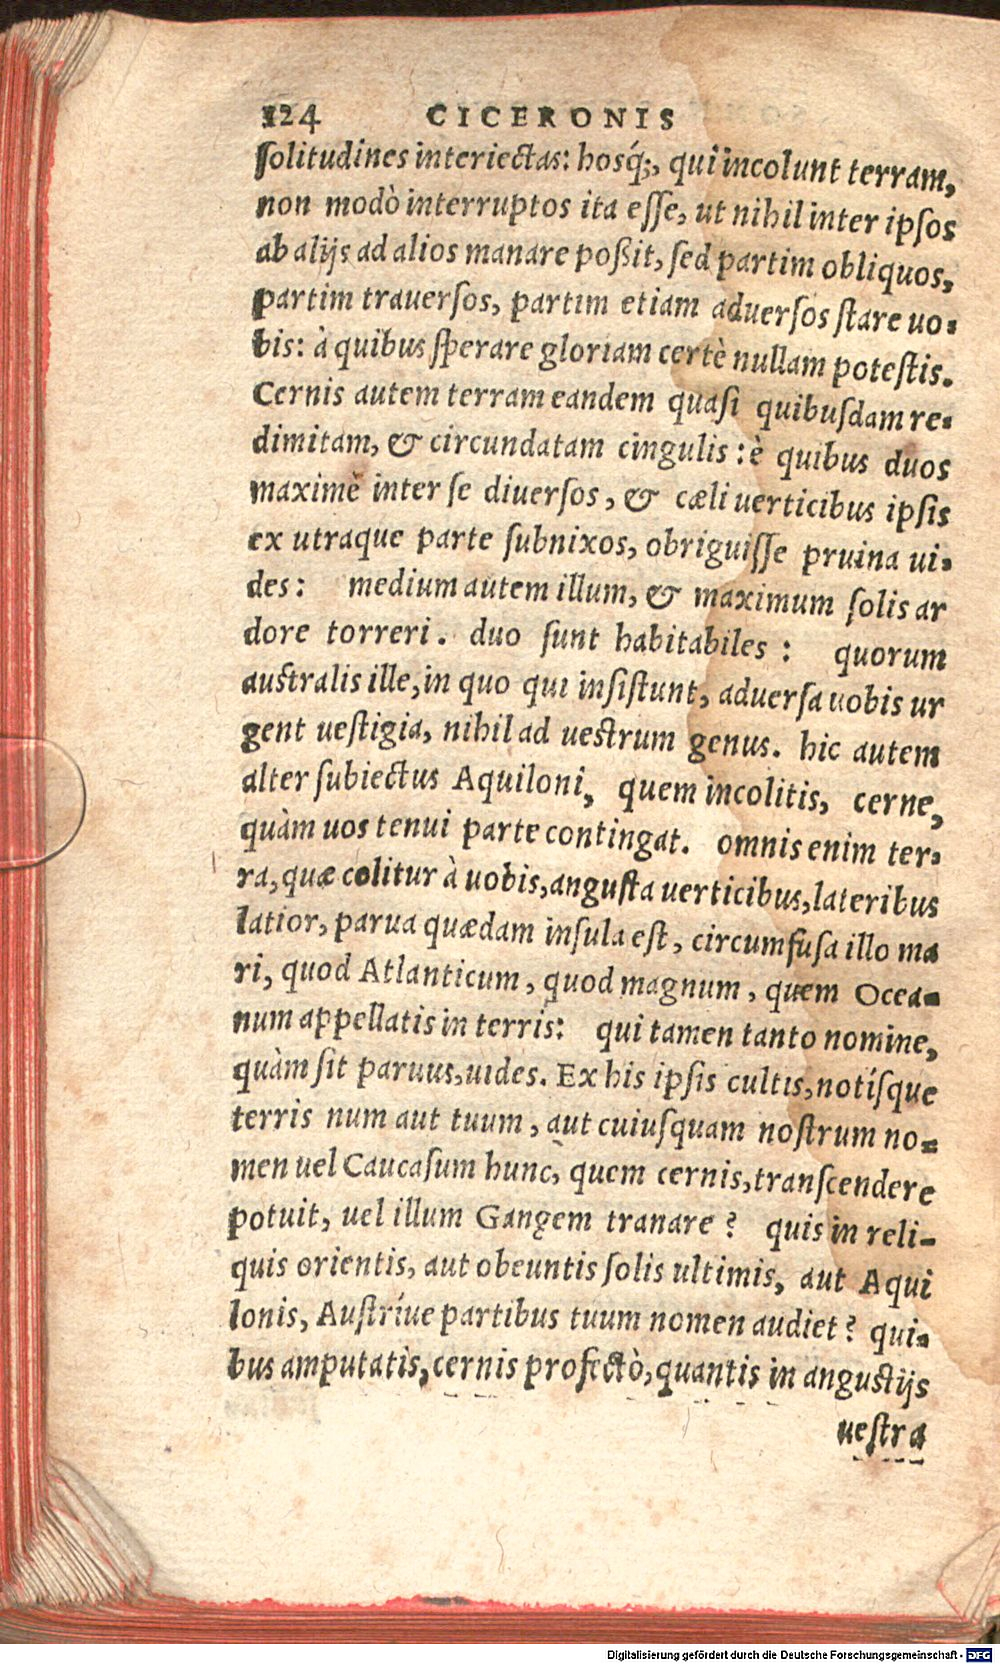 124 CICERONIS
ſolitudines interiectas: hosq́;, qui incolunt terram,
non modò interruptos ita eſſe, ut nihil inter ipſos
ab alijs ad alios manare poßit, ſed partim obliquos,
partim trauerſos, partim etiam aduerſos ſtare uo-
bis: à quibus ſperare gloriam certè nullam poteſtis.
Cernis autem terram eandem quaſi quibuſdam re-
dimitam, & circundatam cingulis: è quibus duos
maximè inter ſe diuerſos, & cæli uerticibus ipſis
ex utraque parte ſubnixos, obriguiſſe pruina ui-
des: medium autem illum, & maximum ſolis ar
dore torreri. duo ſunt habitabiles: quorum
auſtralis ille, in quo qui inſiſtunt, aduerſa uobis ur
gent ueſtigia, nihil ad ueſtrum genus. hic autem
alter ſubiectus Aquiloni, quem incolitis, cerne,
quàm uos tenui parte contingat. omnis enim ter-
ra, quæ colitur à uobis, anguſta uerticibus, lateribus
latior, parua quædam inſula eſt, circumfuſa illo ma
ri, quod Atlanticum, quod magnum, quem Ocea-
num appellatis in terris: qui tamen tanto nomine,
quàm ſit paruus, uides. Ex his ipſis cultis, notíſque
terris num aut tuum, aut cuiuſquam noſtrum no-
men uel Caucaſum hunc, quem cernis, tranſcendere
potuit, uel illum Gangem tranare? quis in reli-
quis orientis, aut obeuntis ſolis ultimis, aut Aqui
lonis, Auſtríue partibus tuum nomen audiet? qui-
bus amputatis, cernis profectò, quantis in anguſtijs
ueſtra
Digitalisierung gefördert durch die Deutsche Forschungsgemeinschaft - DFG